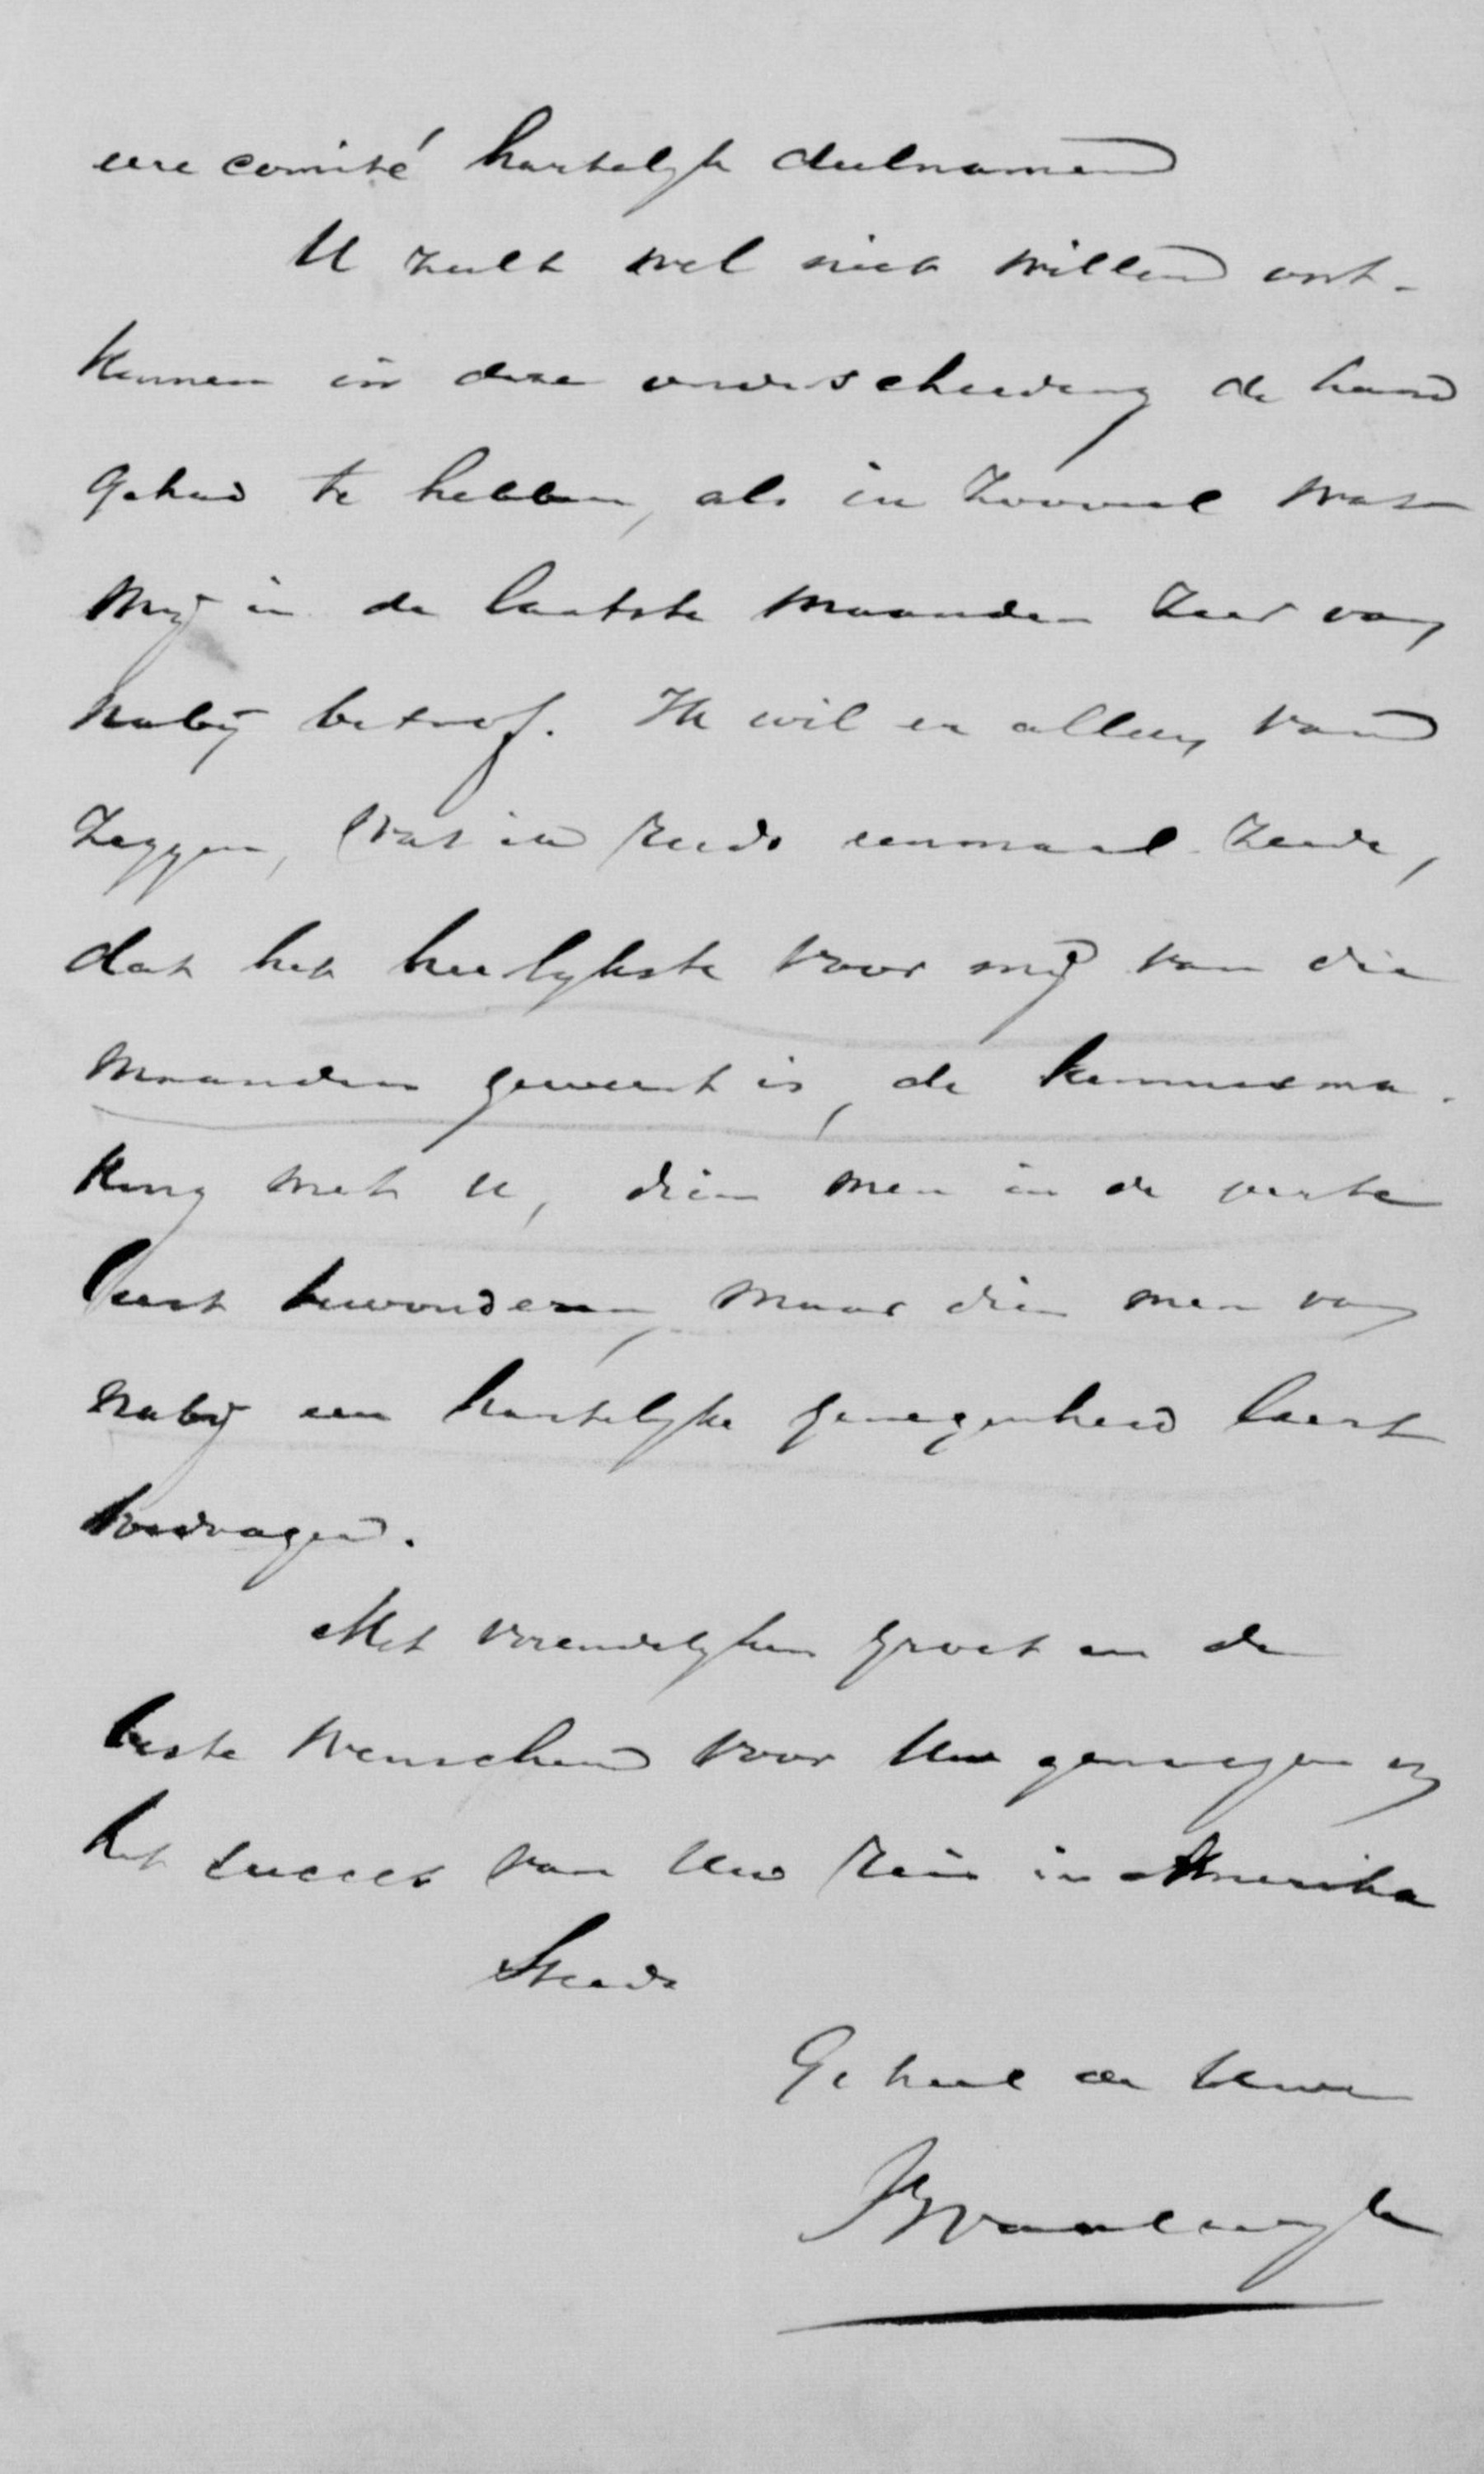 eere comité hartelijk deelnamen
U zult wel niet willen ont-
kennen in deze onderscheiding de hand
gehad te hebben, als in zooveel wat
mij in de laatste maanden zeer van
nabij betrof. Ik wil er alleen van
zeggen, wat ik reeds eenmaal zeide,
dat het heerlijkste voor mij van die
maanden geweest is, de kennisma-
king met U, dien men in de verte
leert bewonderen, maar dien men van
nabij een hartelijke genegenheid leert
toedragen.
Met vriendelijken groet en de
beste wenschen voor Uw genoegen en
het succes van Uw reis in Amerika
Steeds
Geheel de Uwe